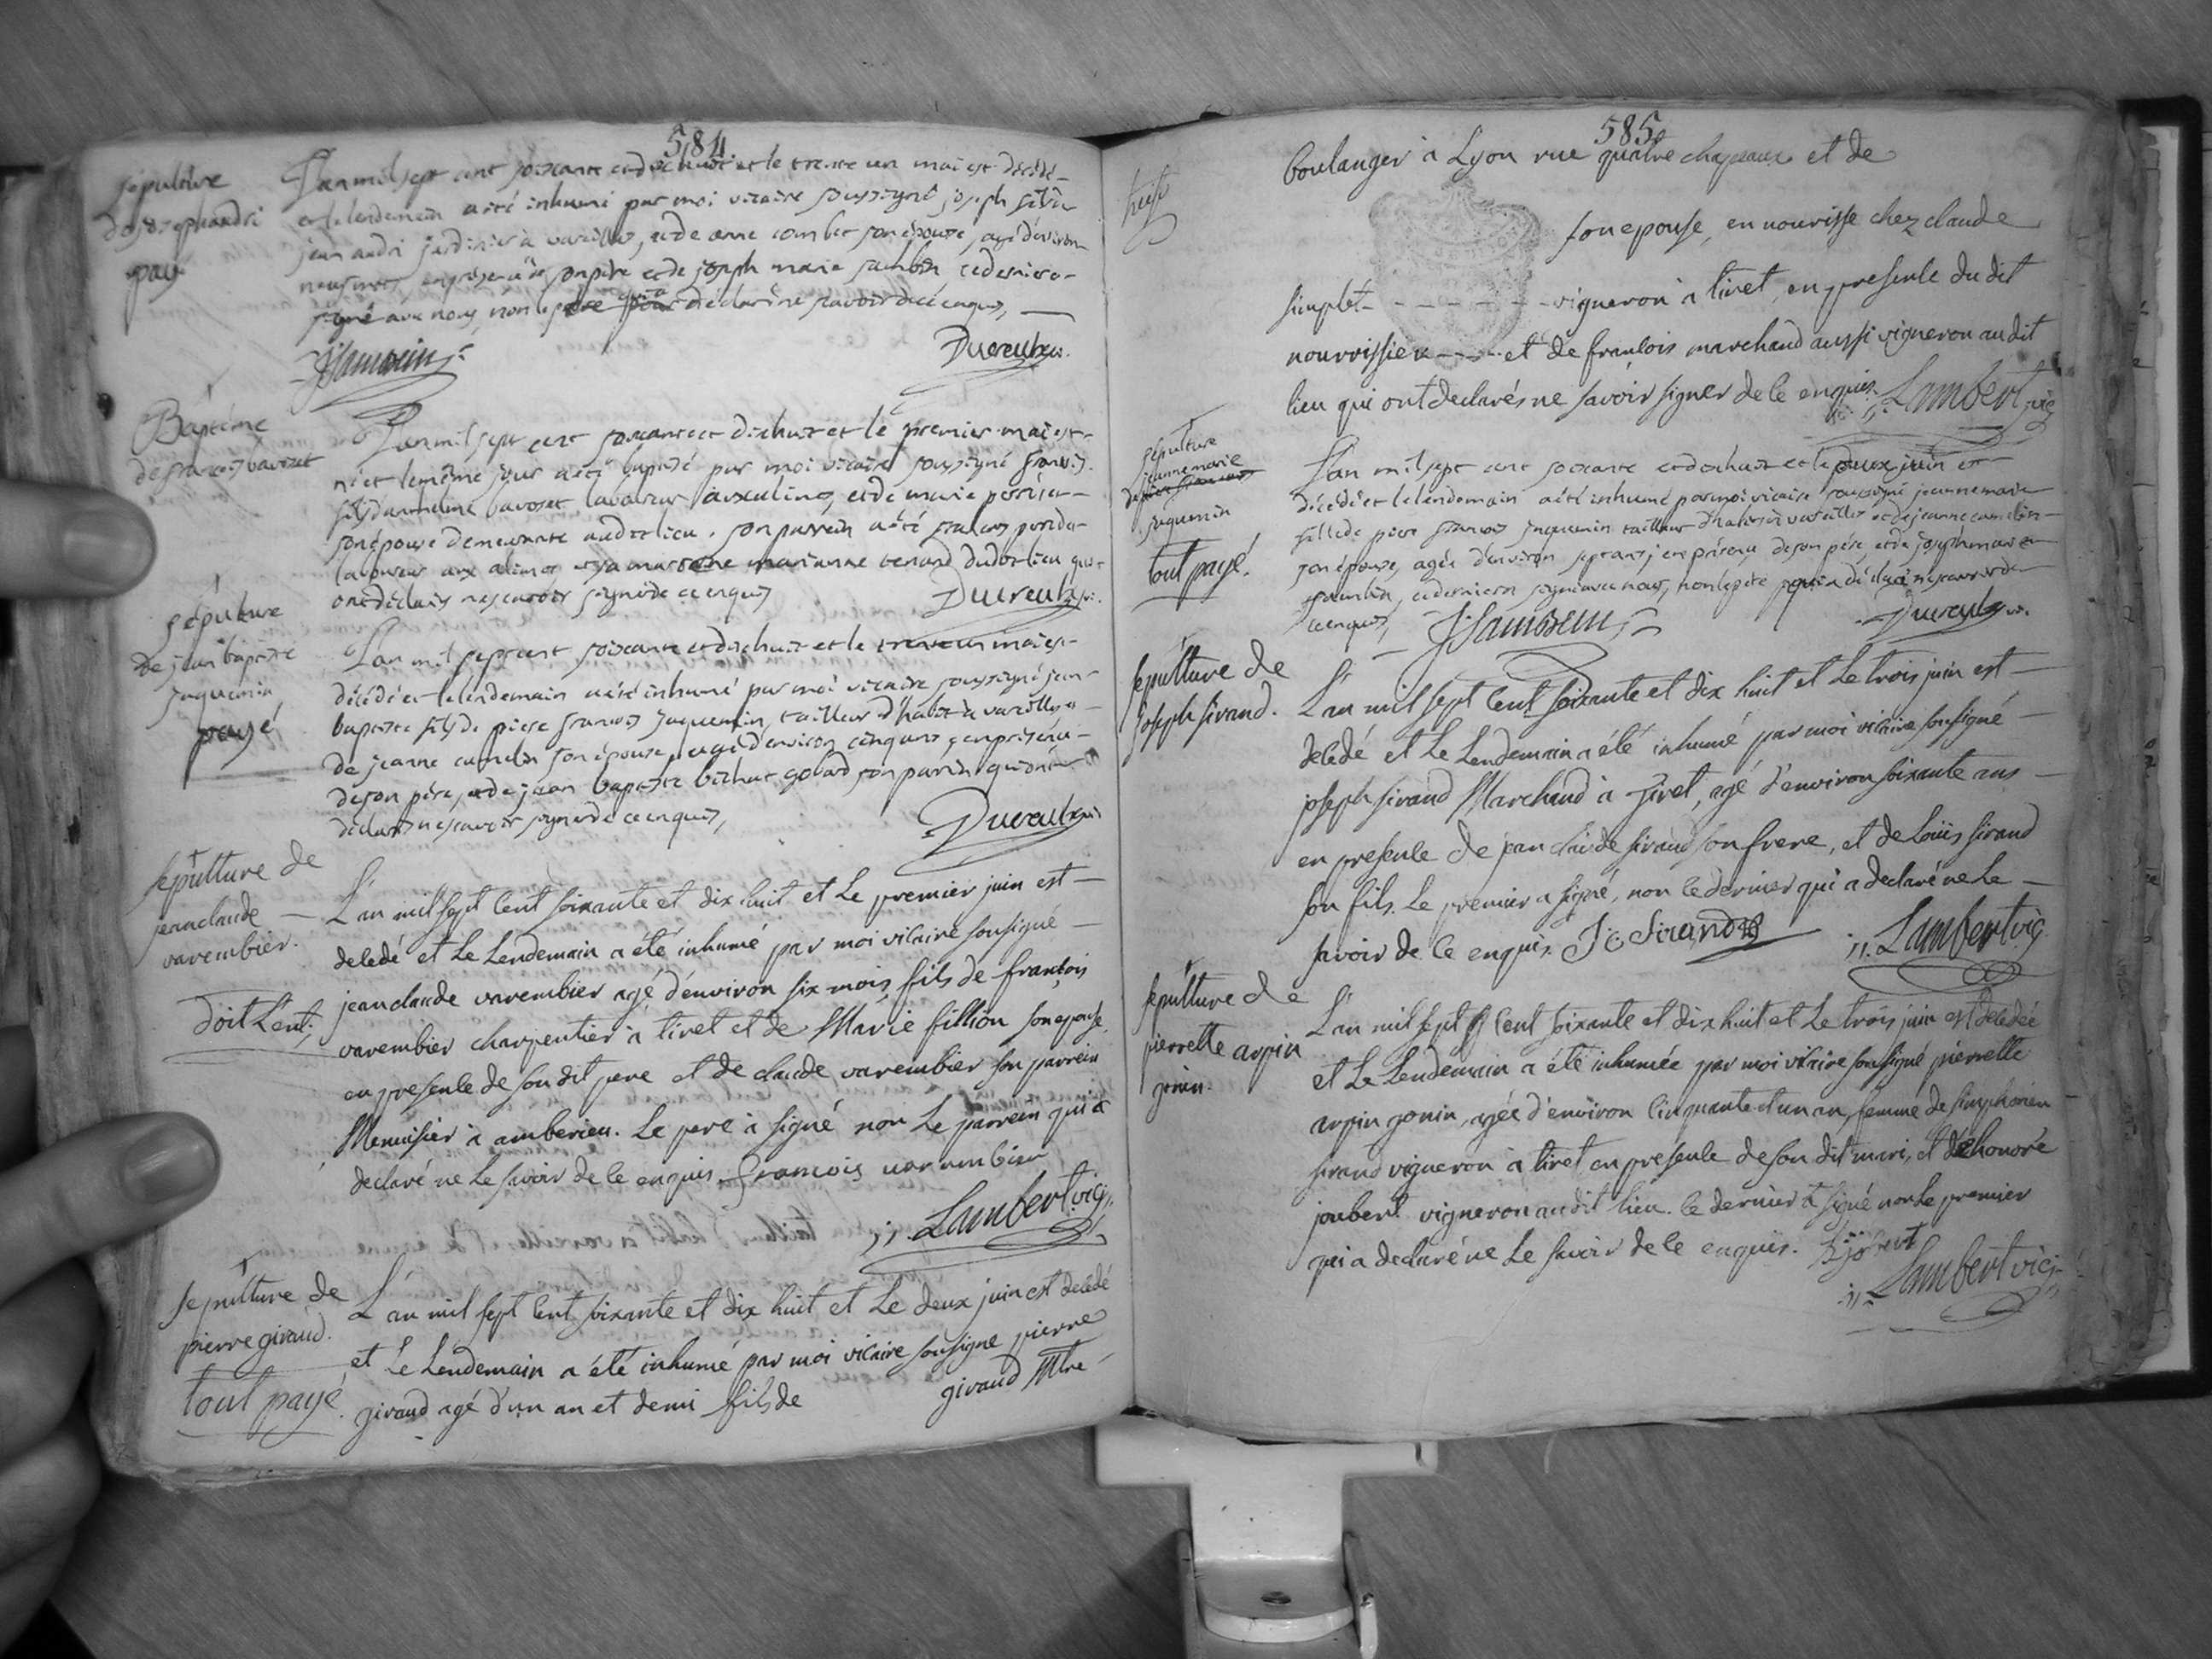 584
Sepulture
de joseph andri
payé
L'an mil sept cent soixante et dix huit et le trente un mai est décédé
et le lendemain a été inhumé par moi vicaire soussigné joseph fils de
jean andri jardinier à vareilles, et de anne combet son épouse, agé d'environ
neuf mois, en présence de son père et de joseph marie sambin ce dernier a
signé avec nous, non le père qui a déclaré ne savoir de ce enquis,
JSambin
Ducreulx vic.
Baptême
de francois bavoset
L'an mil sept cent soixante et dixhuit et le premier mai est
né et le même jour a été baptisé par moi vicaire soussigné francois
fils d'anthelme bavoset laboureur aux alimes, et de marie perrier
son épouse demeurante audit lieu. son parrein a été
laboureur aux alimes et sa marreine marianne tenand dudit lieu qui
ont déclarés ne scavoir signer de ce enquis
Ducreulx vic.
Sépulture
de jean baptiste
jaquemin
payé
L'an mil sept cent soixante et dixhuit et le trente un mai est
décédé et le lendemain a été inhumé par moi vicaire soussigné jean
baptiste fils de piere francois jaquemin, tailleur d'habit à vareilles et
de jeanne camelin son épouse, agé d'environ cinq ans, en présence
de son père, et de jean baptiste bethut gobard son parrein qui ont
déclarés ne scavoir signer de ce enquis,
Ducreulx vic
sepulture de
jeanclaude
varembier.
doit l'ent.
L'an mil sept cent soixante et dix huit et le premier juin est
decedé et le lendemain a été inhumé par moi vicaire sousigné
jeanclaude varembier agé d'environ six mois fils de françois
varembier charpentier à tiret et de Marie fillion son epouse
en presence de son dit pere et de claude varembier son parrein
Menuisier à amberieu. Le pere à signé non le parrein qui a
declaré ne le savoir de ce enquis. francois varambier
Lambert vic.
sepulture de
pierre giraud.
tout payé.
L'an mil sept cent soixante et dix huit et le deux juin est decédé
et le lendemain a été inhumé par moi vicaire sousigné pierre
giraud agé d'un an et demi fils de giraud Mtre
585
boulanger à Lyon rue quatre chapeaux et de
son epouse, en nourisse chez claude
simplet vigneron à tiret, en presence du dit
nourrissier et de françois marchand aussi vigneron au dit
lieu qui ont declarés ne savoir signer de ce enquis. Lambert vic
sépulture
jeanne marie
jaquemin
tout payé.
L'an mil sept cent soixante et dixhuit et le deux juin est
décédé et le lendemain a été inhumé par moi vicaire soussigné jeanne marie
fille de piere francois jaquemin tailleur d'habits à vareilles et de jeanne camelin
son épouse, agée d'environ sept ans, en présence de son père, et de joseph marie
sambin, ce dernier a signé avec nous, non le père qui a déclaré ne scavoir de
ce enquis,
JSambin
Ducreulx vic.
sepulture de
joseph sirand.
L'an mil sept cent soixante et dix huit et le trois juin est
decedé et le lendemain a été inhumé par moi vicaire sousigné
joseph sirand Marchand à tiret, agé d'environ soixante ans
en presence de jean claude sirand son frere, et de Loüis sirand
son fils. Le premier a signé, non le dernier qui a declaré ne le
savoir de ce enquis. JC Sirand
Lambert vic
sepulture de
pierrette arpin
gonin.
L'an mil sept cent soixante et dix huit et le trois juin est decedée
et le lendemain a été inhumée par moi vicaire sousigné pierrette
arpin gonin, agée d'environ cinquante et un an, femme de simphorien
sirand vigneron à tiret en presence de son dit mari, et de honoré
joubert vigneron audit lieu. le dernier a signé non le premier
qui a declaré ne le savoir de ce enquis.
Lambert vic